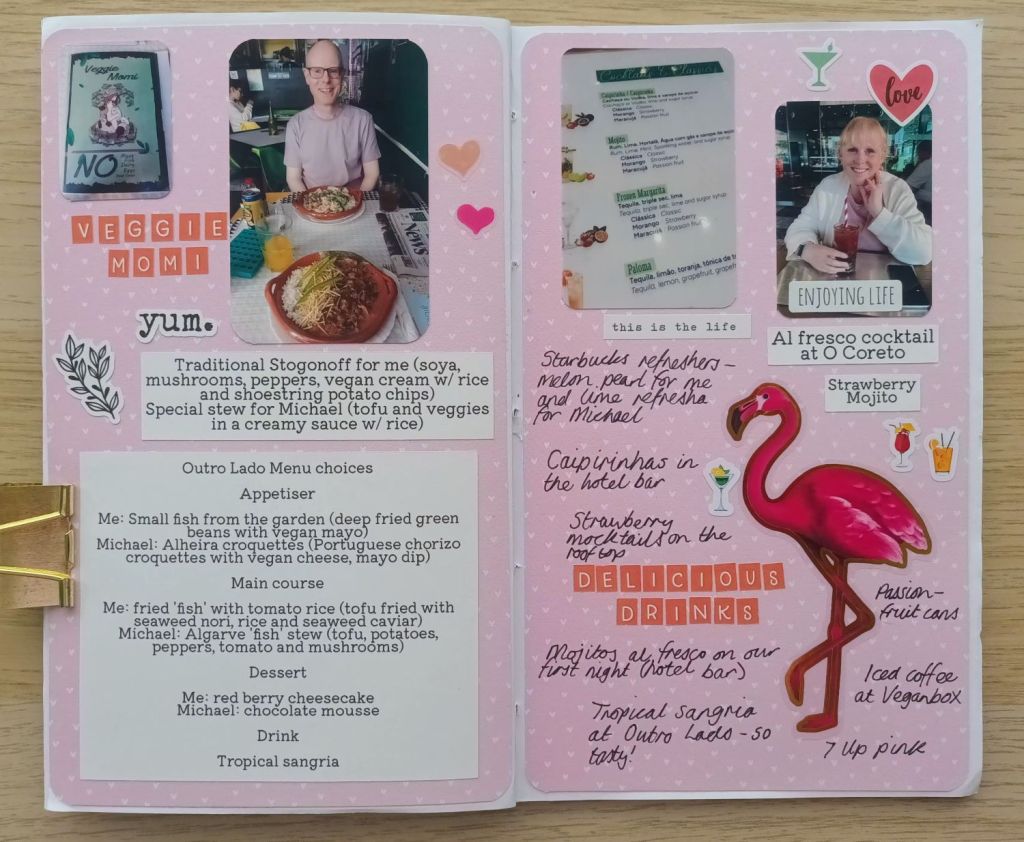 Veggie
Momi
NO
VEGGIE
MOMI
yum.
Traditional Stogonoff for me (soya,
mushrooms, peppers, vegan cream w/ rice
and shoestring potato chips)
Special stew for Michael (tofu and veggies
in a creamy sauce w/ rice)
Outro Lado Menu choices
Appetiser
Me: Small fish from the garden (deep fried green
beans with vegan mayo)
Michael: Alheira croquettes (Portuguese chorizo
croquettes with vegan cheese, mayo dip)
Main course
Me: fried 'fish' with tomato rice (tofu fried with
seaweed nori, rice and seaweed caviar)
Michael: Algarve 'fish' stew (tofu, potatoes,
peppers, tomato and mushrooms)
Dessert
Me: red berry cheesecake
Michael: chocolate mousse
Drink
Tropical sangria
News
Cocktails Classics
Caipirinha / Caipiroska
Clássica Classic
Morango Strawberry
Maracujá Passion fruit
Mojito
Rum, Lima, Hortelã, Água com gás e xarope de
Rum, Lime, Mint, Sparkling water and sugar syrup
Clássico Classic
Morango Strawberry
Maracujá Passion fruit
Frozen Margarita
Tequila, triple sec, lima
Tequila, triple sec, lime and sugar syrup
Clássica Classic
Morango Strawberry
Maracujá Passion fruit
Paloma
Tequila, limão, toranja, tónica de
Tequila, lemon, grapefruit,
this is the life
love
ENJOYING LIFE
Al fresco cocktail
at O Coreto
Strawberry
Mojito
Starbucks refreshers -
melon pearl for me
and lime refresha
for Michael
Caipirinhas in
the hotel bar
Strawberry
mocktails on the
rooftop
DELICIOUS
DRINKS
Passion-
fruit cans
Mojitos al fresco on our
first night (hotel bar)
Iced coffee
at Veganbox
Tropical sangria
at Outro Lado - so
tasty!
7 Up pink